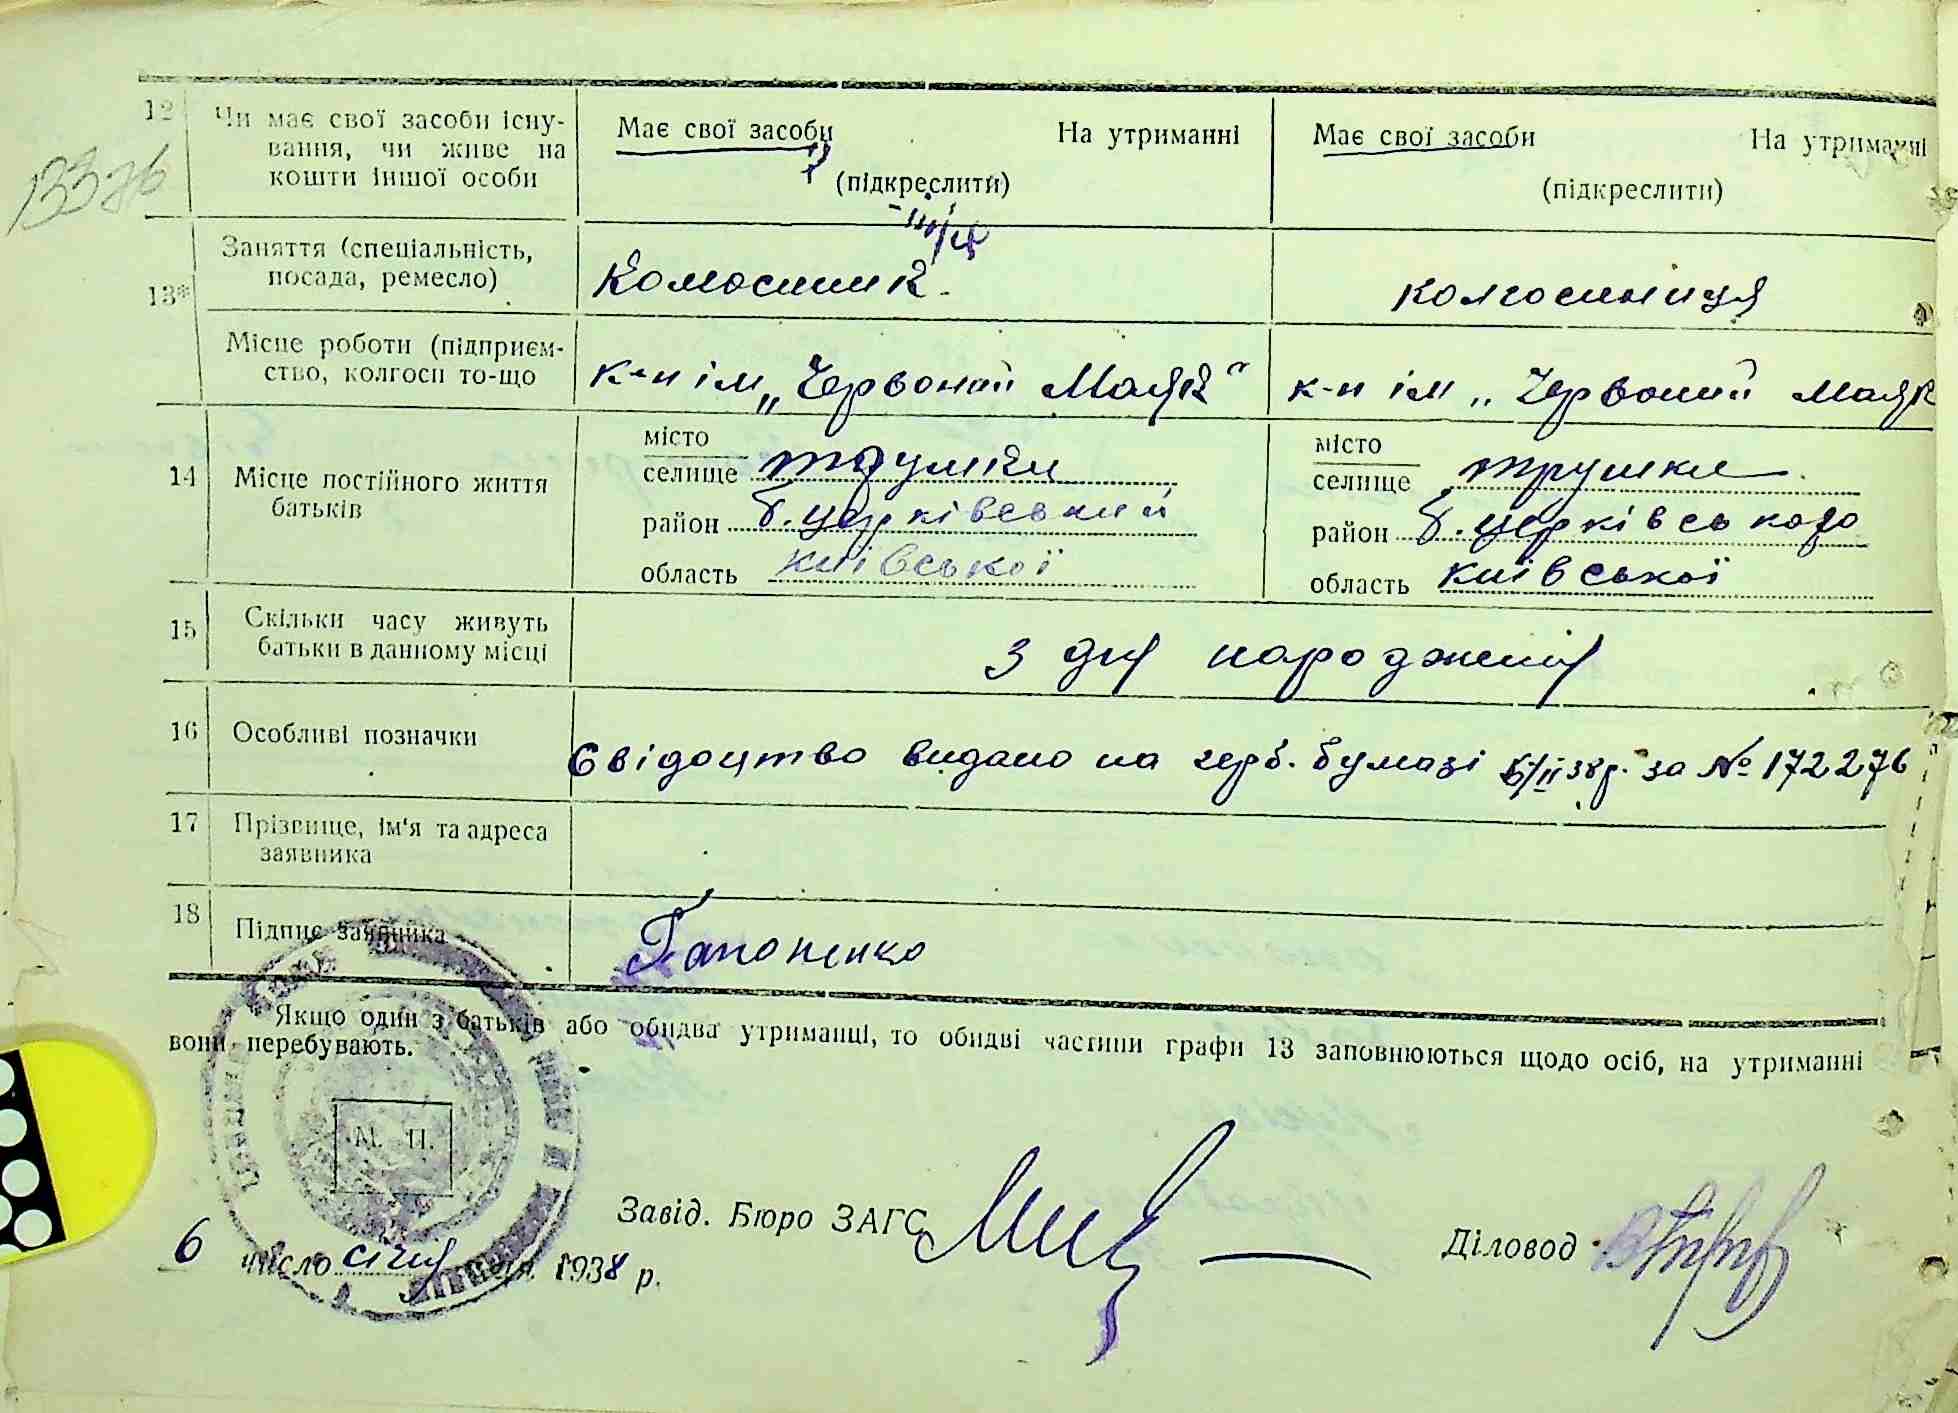 12
Чи має свої засоби існу-
вання, чи живе на
кошти іншої особи
Має свої засоби На утриманні
(підкреслити)
Має свої засоби На утриманні
(підкреслити)
13376
13*
Заняття (спеціальність,
посада, ремесло)
колгосниця
Місце роботи (підприєм-
ство, колгосп то-що
к-п ім „Червоний Маяк"
к-п ім „Червоний Маяк
14
Місце постійного життя
батьків
місто
селище трушки
район б.церківський
область київської
місто
селище трушки
район б.церківського
область київської
15
Скільки часу живуть
батьки в данному місці
з дня народження
16
Особливі позначки
Свідоцтво видано на герб. бумазі 6/II 38р. за № 172276
17
Прізвище, ім'я та адреса
заявника
18
Підпис заявника
Гапоненко
Якщо один з батьків або обидва утриманці, то обидві частини графи 13 заповнюються щодо осіб, на утриманні
вони перебувають.
М. П.
Завід. Бюро ЗАГС
Діловод
6 число січня 1938 р.